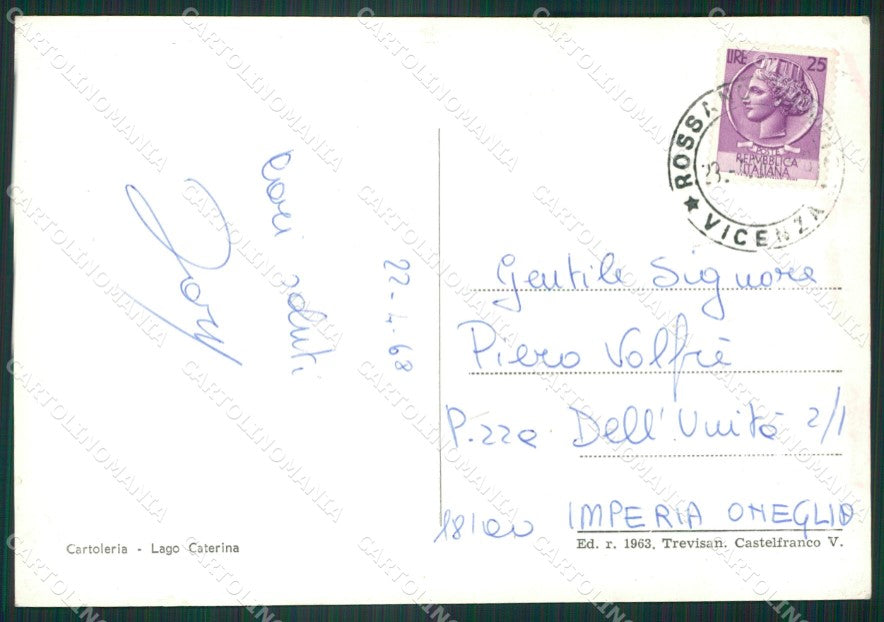 Cari saluti
22-4-68
LIRE 25
POSTE
REPVBBLICA
ITALIANA
VICENZA
23.
Gentile Signore
Piero Volfrè
P.zza Dell'Unità 2/1
18100 IMPERIA ONEGLIA
Cartoleria - Lago Caterina
Ed. r. 1963, Trevisan. Castelfranco V.
CARTOLINOMANIA